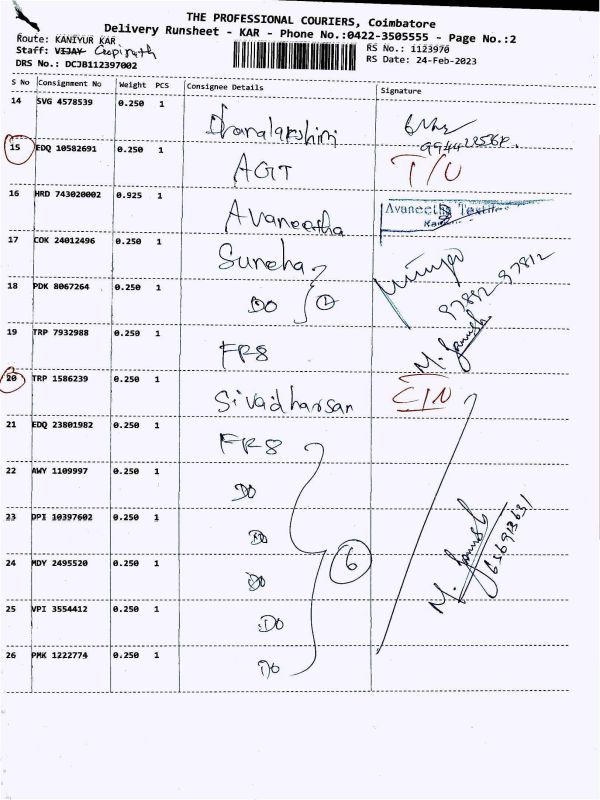 THE PROFESSIONAL COURIERS, Coimbatore
Delivery Runsheet - KAR - Phone No.:0422-3505555 - Page No.:2
Route: KANIYUR KAR
Staff: VIJAY Gopinath
DRS No.: DCJB112397002
RS No.: 1123970
RS Date: 24-Feb-2023
S No Consignment No Weight PCS Consignee Details Signature
14 SVG 4578539 0.250 1 Dhanalakshimi
15 EDQ 10582691 0.250 1 AGT T/U
16 HRD 743020002 0.925 1 Avaneetha Avaneetha Textiles
17 COK 24012496 0.250 1 Suneha
18 PDK 8067264 0.250 1 DO 2 97892 97812
19 TRP 7932988 0.250 1 FR8 M.
20 TRP 1586239 0.250 1 Sivadharsan C/N
21 EDQ 23801982 0.250 1 FR8
22 AWY 1109997 0.250 1 DO
23 DPI 10397602 0.250 1 DO
24 MDY 2495520 0.250 1 DO 6 M.
25 VPI 3554412 0.250 1 DO
26 PMK 1222774 0.250 1 DO